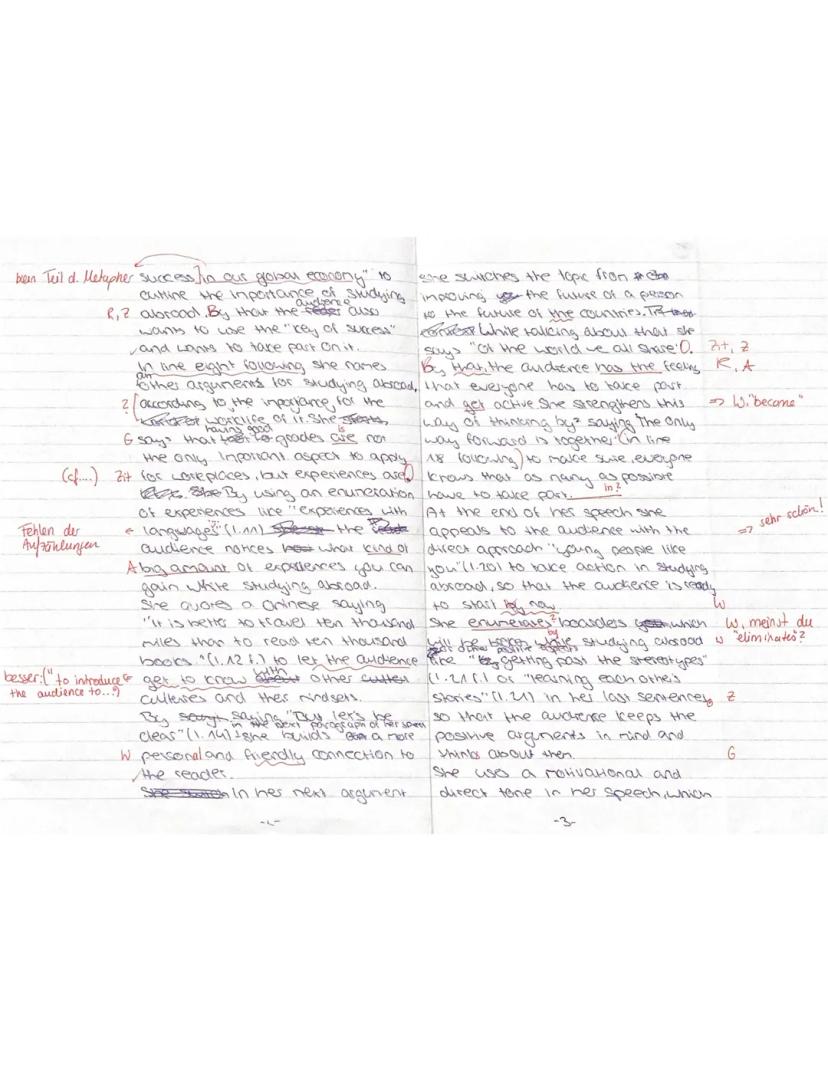 kein Teil d. Metapher
success] in our global economy" to
outline the importance of studying
audience
R, Z abroad. By that the also
wants to use the "key of success"
and wants to take part on it.
In line eight following she names
an
other arguments for studying abroad,
Z according to the importance for the
worklife of it. She
having good is
G says that grades are not
the only important aspect to apply
(cf....) Zit for workplaces, but experiences are.
By using an enumeration
of experiences like "experiences with
Fehlen der Aufzählungen
languages" (l.11) the
audience notices what kind of
A big amount of experiences you can
gain while studying abroad.
She quotes a Chinese saying
"it is better to travel ten thousand
miles than to read ten thousand
books." (l.12 f.) to let the audience
besser: ("to introduce the audience to...")
with
get to know other
cultures and their mindsets.
By saying "But let's be
in the next paragraph of her speech
clear" (l.14) she builds a more
W personal and friendly connection to
the reader.
In her next argument
-2-
she switches the topic from
improving the future of a person
to the future of the countries.
While talking about that she
says "Of the world we all share". Zit, Z
By that, the audience has the feeling R, A
that everyone has to take part
and get active. She strengthens this => W. "become"
way of thinking by saying "The only
way forward is together" (in line
18 following) to make sure, everyone
knows that as many as possible
in?
have to take part.
At the end of her speech she
appeals to the audience with the => sehr schön!
direct approach "young people like
you" (l.20) to take action in studying
abroad, so that the audience is ready
to start by now. W
She enumerates boarders which W, meinst du
by
will be studying abroad W "eliminates"?
or other positive aspects
like "getting past the stereotypes"
(l.21 f.) or "learning each other's
stories" (l.21) in her last sentences, Z
so that the audience keeps the
positive arguments in mind and
thinks about them. G
She uses a motivational and
direct tone in her speech, which
-3-